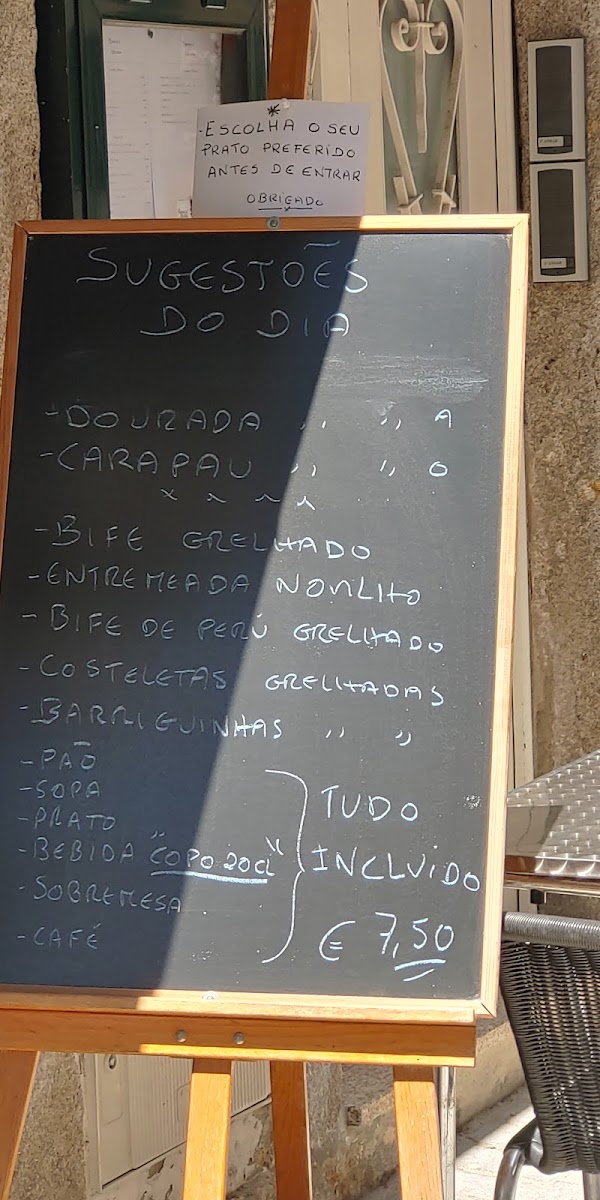 *
-ESCOLHA O SEU
PRATO PREFERIDO
ANTES DE ENTRAR
OBRIGADO
SUGESTÕES
DO DIA
-DOURADA ,, ,, A
-CARAPAU ,, ,, O
x x x x
-BIFE GRELHADO
-ENTREMEADA NOVILHO
-BIFE DE PERÚ GRELHADO
-COSTELETAS GRELHADAS
-BARRIGUINHAS ,, ,,
-PÃO
-SOPA
-PRATO
-BEBIDA "COPO 20CL"
-SOBREMESA
-CAFÉ
TUDO
INCLUIDO
€ 7,50